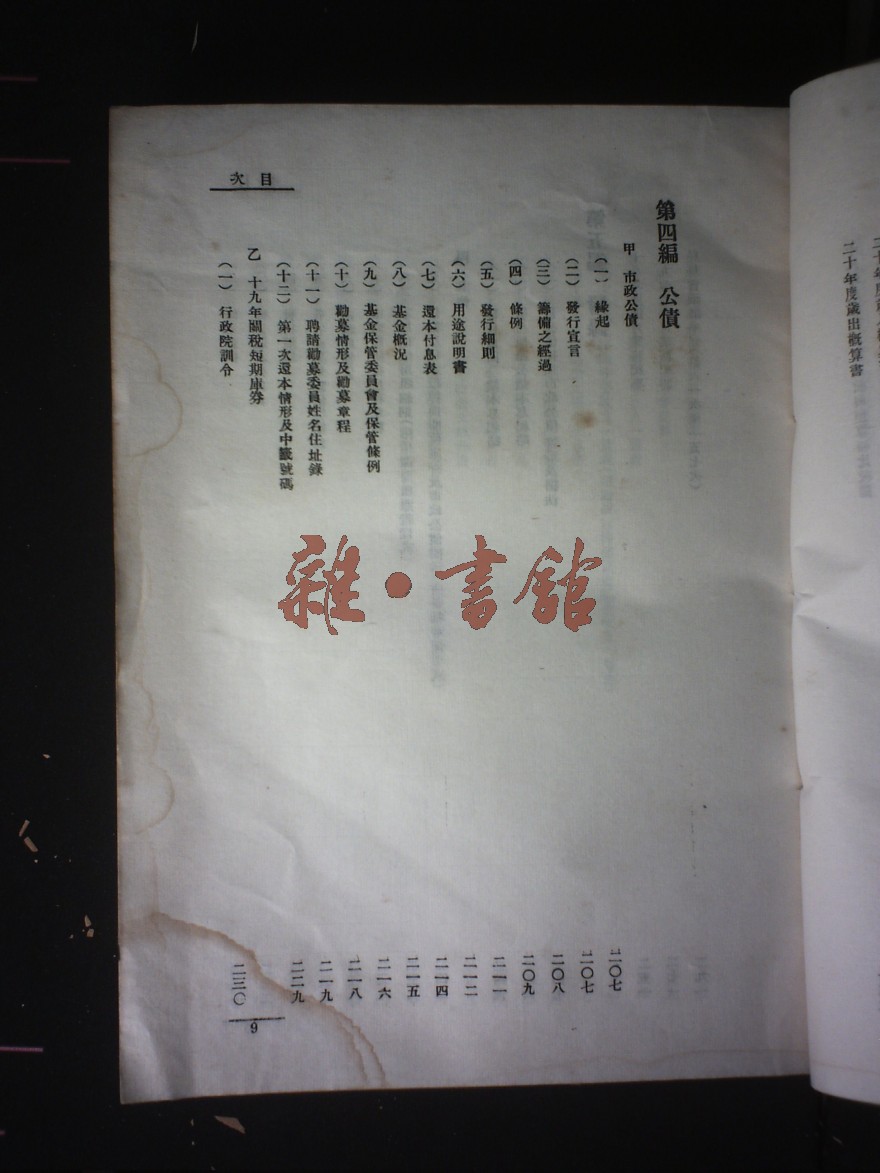 目次
第四編 公債
甲 市政公債
（一） 緣起 二〇七
（二） 發行宣言 二〇七
（三） 籌備之經過 二〇八
（四） 條例 二〇九
（五） 發行細則 二一一
（六） 用途說明書 二一二
（七） 還本付息表 二一四
（八） 基金概況 二一五
（九） 基金保管委員會及保管條例 二一六
（十） 勸募情形及勸募章程 二一八
（十一） 聘請勸募委員姓名住址錄 二一九
（十二） 第一次還本情形及中籤號碼 二二九
乙 十九年關稅短期庫券
（一） 行政院訓令 二三〇
9
二十年度歲出概算書
雜·書館